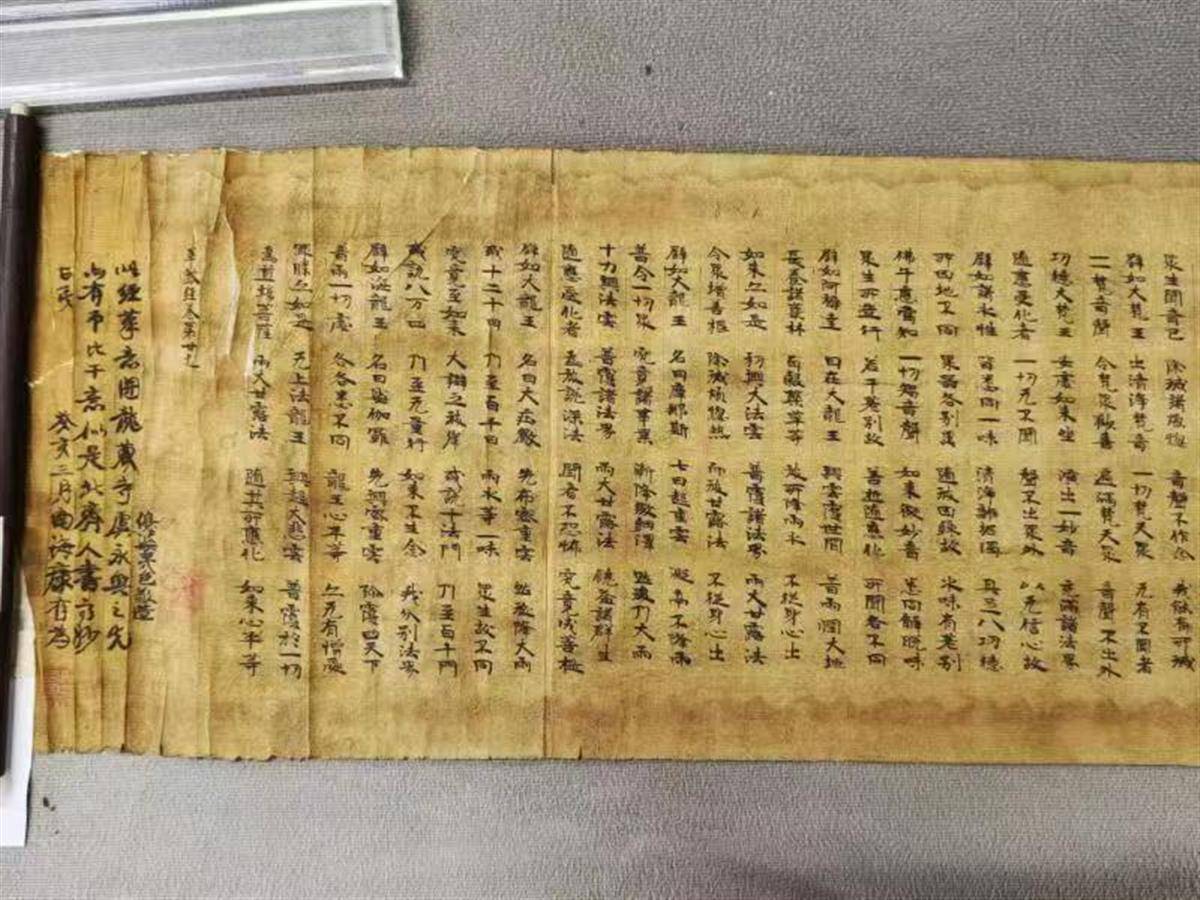 眾生聞音已 除滅諸煩惱 音聲不作念 我能有所滅
辟如大梵王 出清淨梵音 一切梵天眾 无有不聞者
一梵音聞 令梵眾歡喜 遍滿梵天眾 音聲不出外
功德大梵王 安處如來座 演出一妙音 充滿諸法界
隨應受化者 一切无不聞 聲不出眾外 以无信心故
辟如諸水性 皆悉同一味 清淨離垢濁 具足八功德
所因地不同 眾器各別異 隨故因緣故 水味有差別
佛子應當知 一切妙音聲 如來微妙音 悉同解脫味
眾生所應行 若干差別故 善逝隨應化 所聞各不同
辟如阿耨達 自在大龍王 興雲覆世間 普雨潤大地
長養諸叢林 百穀藥草等 彼所降雨水 不從身心出
如來亦如是 初興大法雲 普覆諸法界 雨大甘露法
令眾增善根 除滅煩惱熱 而彼甘露法 不從身心出
辟如大龍王 名曰摩那斯 七日起重雲 凝亭不降雨
普令一切眾 究竟諸事業 漸降微細澤 然後乃大雨
十力興法雲 普覆諸法界 雨大甘露法 饒益諸群生
隨應受化者 說深法 聞者不恐怖 究竟成善根
辟如大龍王 名曰大莊嚴 先布密重雲 然後降大雨
或十二十四 乃至百千四 雨水等一味 眾生故不同
究竟至如來 大辯之彼岸 或說十法門 乃至百千門
或說八万四 乃至无量行 如來不生念 我分別法界
辟如 龍王 名曰娑伽羅 先興密重雲 弥覆四天下
普雨一切處 各各悉不同 龍王心平等 亦无有憎愛
最勝亦如是 无上法龍王 興起大悲雲 普覆於一切
為諸菩薩 雨大甘露法 隨其所應化 如來心平等
華嚴經卷第卅九
此經筆意圓 為虞永興之先
尚有 比干意似是北齊人書 妙
癸亥三月南海康有為